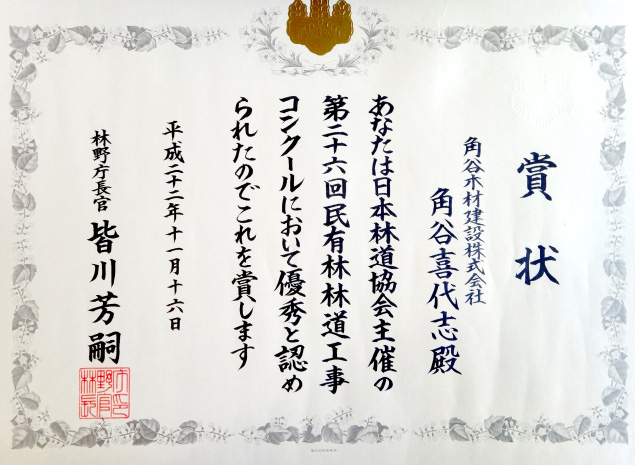 賞状
角谷木材建設株式会社
角谷喜代志殿
あなたは日本林道協会主催の
第二十六回民有林林道工事
コンクールにおいて優秀と認め
られたのでこれを賞します
平成二十二年十一月十六日
林野庁長官 皆川芳嗣